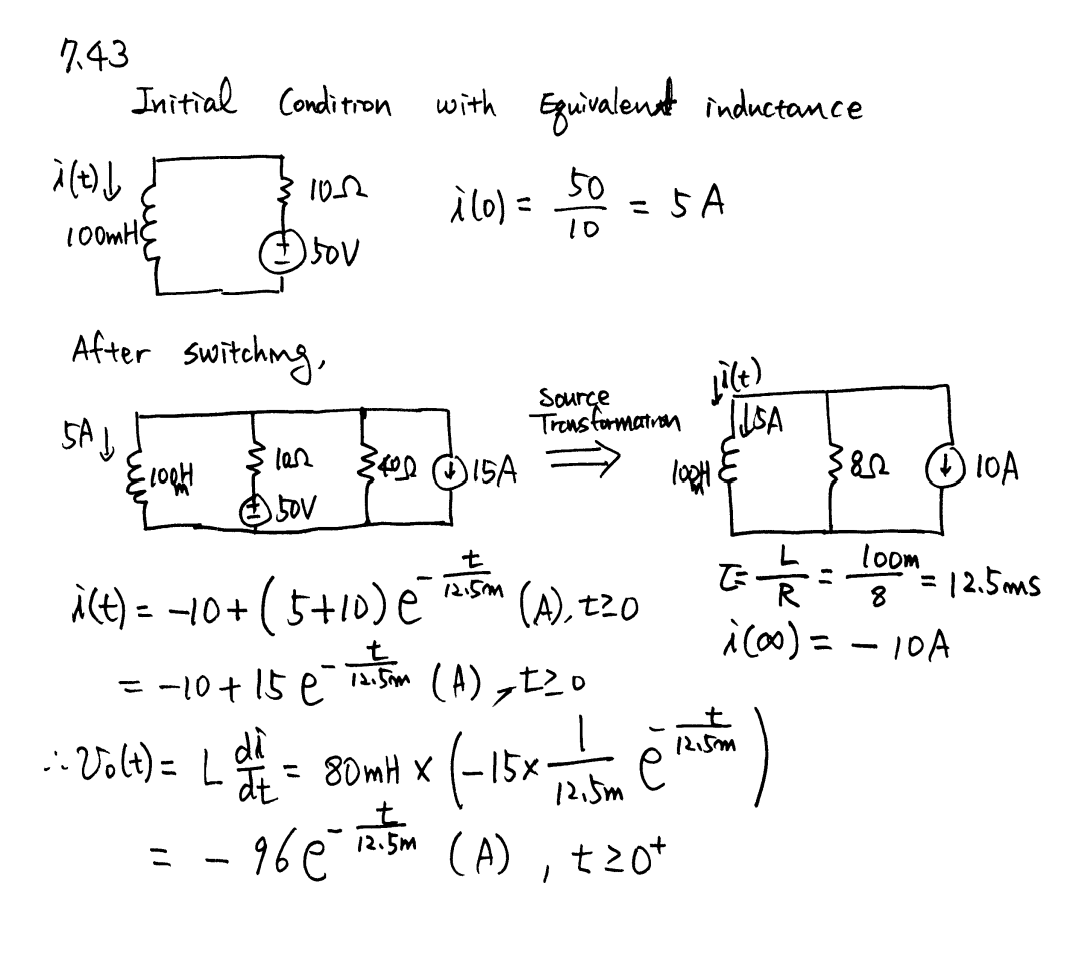 7.43
Initial Condition with Equivalent inductance
i(t)↓
100mH
10Ω
50V
i(0) = 50/10 = 5 A
After switching,
5A↓
100mH
10Ω
50V
40Ω
15A
Source
Transformation
⇒
↓i(t)
↓5A
100mH
8Ω
10A
τ = L/R = 100m/8 = 12.5ms
i(∞) = -10A
i(t) = -10 + (5+10) e^(-t/12.5m) (A), t≥0
= -10 + 15 e^(-t/12.5m) (A), t≥0
∴ v₀(t) = L di/dt = 80mH × (-15 × 1/12.5m e^(-t/12.5m))
= -96 e^(-t/12.5m) (A), t≥0⁺